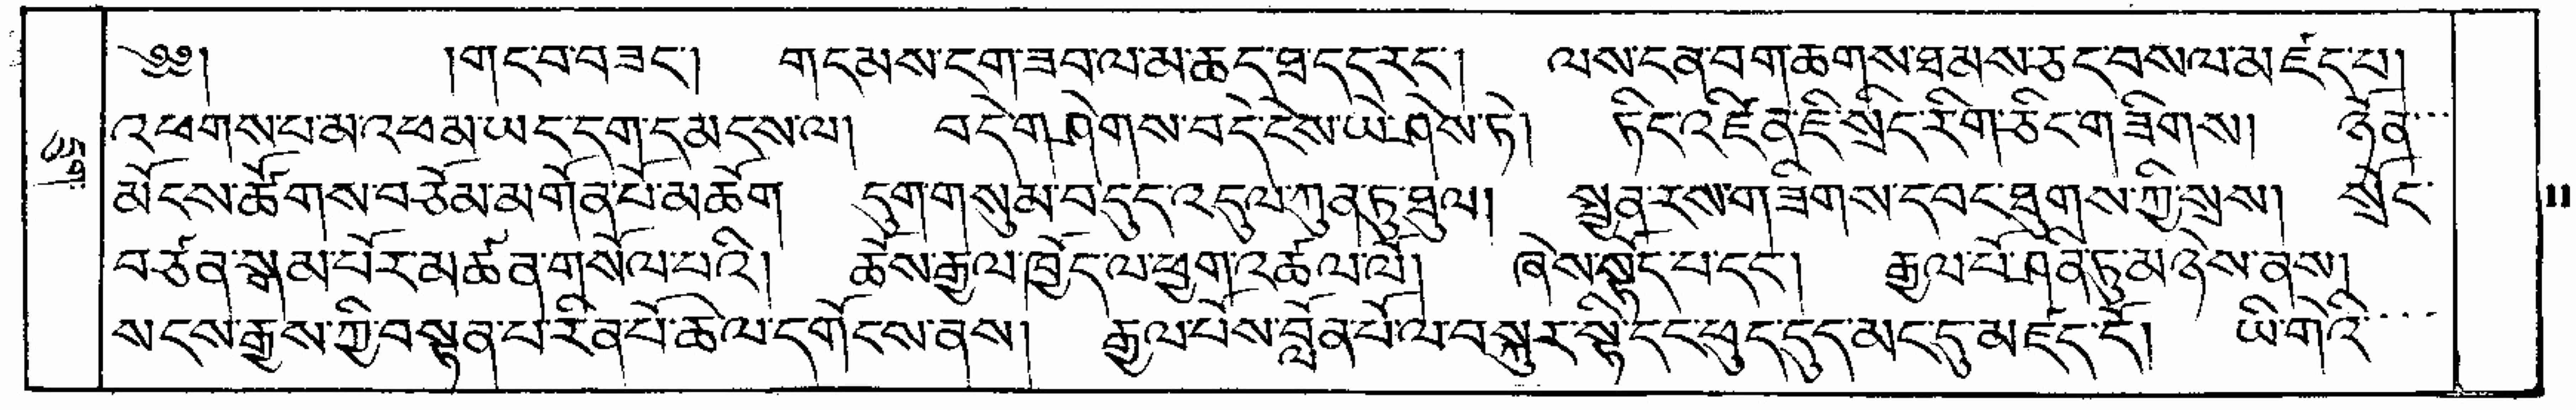 ༄༅། །གང་བ་བཟང་། གདམས་ངག་ཟབ་ལ་མ་ཆད་ཐ་དད་རང་། ལས་ངན་བག་ཆགས་ཐམས་ཅད་བསལ་མཛད་པ།
འཕགས་པ་མ་འཕམ་ཡང་དག་དམངས་ལ། བདེ་གཤེགས་བདེ་ངེས་ཡེ་ཤེས་ཏེ། ཏིང་འཛིན་ཇི་སྲིད་རིག་ཅིང་གཟིགས། ཉོན་
མོངས་ཚོགས་བཅོམ་མགོན་པོ་མཆོག དུག་གསུམ་བདུད་འདུལ་ཀུན་ཏུ་ཐུལ། སྤྱན་རས་གཟིགས་དབང་ཐུགས་ཀྱི་སྲས། སྲོང་
བཙན་སྒམ་པོར་མཚན་གསོལ་པའི། ཆོས་རྒྱལ་ཁྱོད་ལ་ཕྱག་འཚལ་ལོ། ཞེས་སྟོད་པ་དང་། རྒྱལ་པོ་ཤིན་ཏུ་མཉེས་ནས།
སངས་རྒྱས་ཀྱི་བསྟན་པ་རིན་པོ་ཆེ་ལ་དགོངས་ནས། རྒྱལ་པོས་བློན་པོ་ལ་བསྐུར་སྟི་དང་ཕུད་དུད་མང་དུ་མཛད་དོ། ཡི་གེའི་